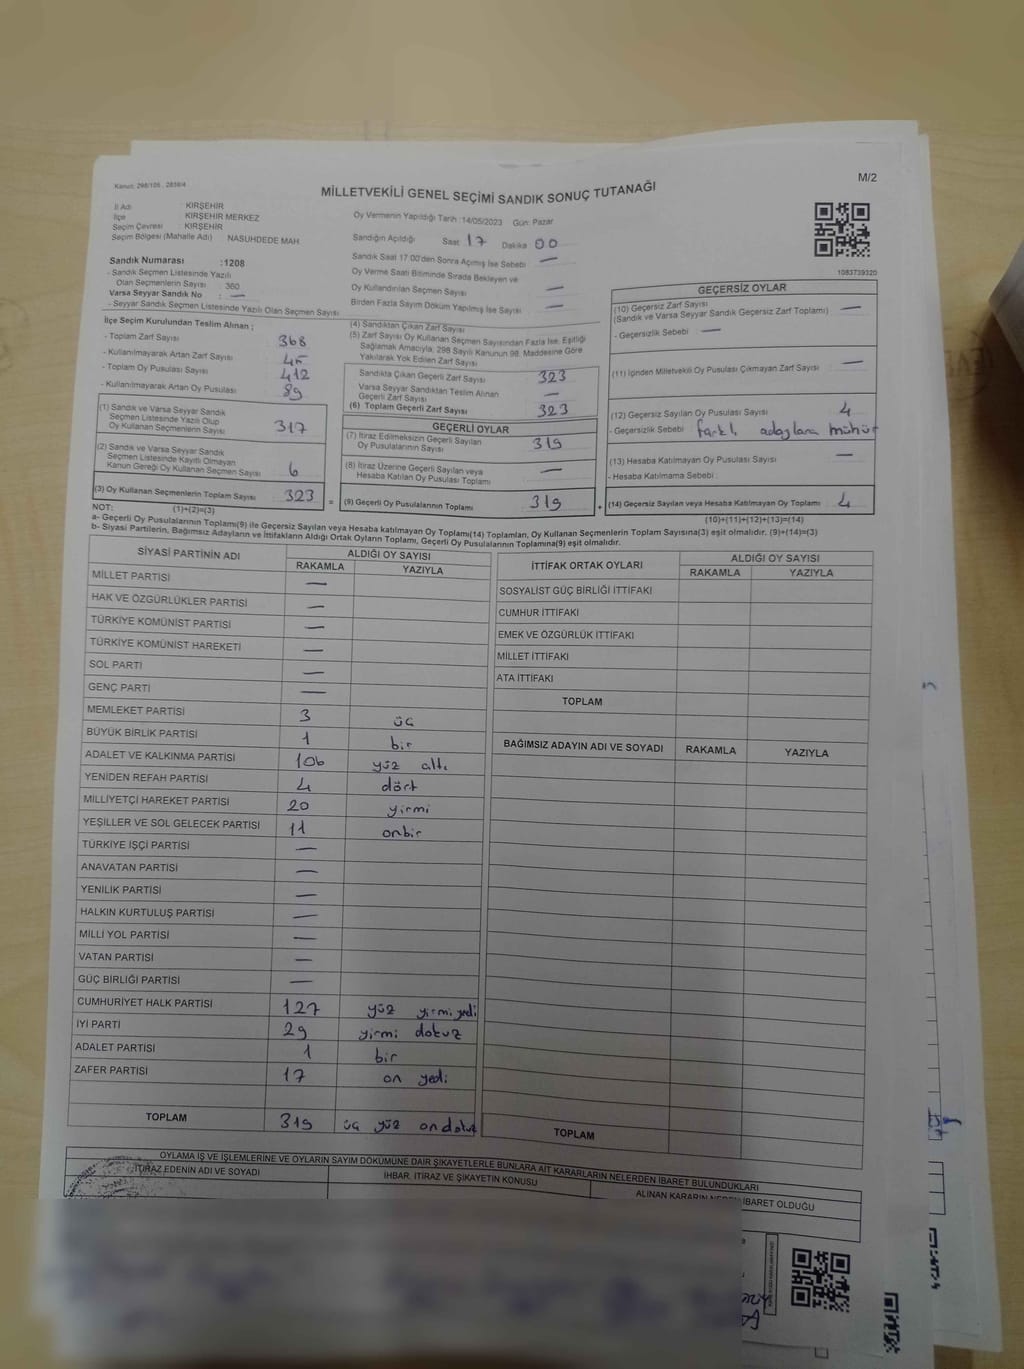 Kanun: 298/105 , 2839/4
M/2
MİLLETVEKİLİ GENEL SEÇİMİ SANDIK SONUÇ TUTANAĞI
İl Adı : KIRŞEHİR
İlçe KIRŞEHİR MERKEZ
Seçim Çevresi : KIRŞEHİR
Seçim Bölgesi (Mahalle Adı) NASUHDEDE MAH.
Sandık Numarası :1208
- Sandık Seçmen Listesinde Yazılı
Olan Seçmenlerin Sayısı : 360
Varsa Seyyar Sandık No : —
- Seyyar Sandık Seçmen Listesinde Yazılı Olan Seçmen Sayısı
Oy Vermenin Yapıldığı Tarih :14/05/2023 Gün: Pazar
Sandığın Açıldığı Saat 17 Dakika 00
Sandık Saat 17:00'den Sonra Açılmış İse Sebebi —
Oy Verme Saati Bitiminde Sırada Bekleyen ve
Oy Kullandırılan Seçmen Sayısı —
Birden Fazla Sayım Döküm Yapılmış İse Sayısı —
1083739320
İlçe Seçim Kurulundan Teslim Alınan ;
- Toplam Zarf Sayısı 368
- Kullanılmayarak Artan Zarf Sayısı 45
- Toplam Oy Pusulası Sayısı 412
- Kullanılmayarak Artan Oy Pusulası 89
(1) Sandık ve Varsa Seyyar Sandık
Seçmen Listesinde Yazılı Olup
Oy Kullanan Seçmenlerin Sayısı 317
(2) Sandık ve Varsa Seyyar Sandık
Seçmen Listesinde Kayıtlı Olmayan
Kanun Gereği Oy Kullanan Seçmen Sayısı 6
(3) Oy Kullanan Seçmenlerin Toplam Sayısı 323 =
(4) Sandıktan Çıkan Zarf Sayısı
(5) Zarf Sayısı Oy Kullanan Seçmen Sayısından Fazla İse, Eşitliği
Sağlamak Amacıyla, 298 Sayılı Kanunun 98. Maddesine Göre
Yakılarak Yok Edilen Zarf Sayısı
Sandıkta Çıkan Geçerli Zarf Sayısı 323
Varsa Seyyar Sandıktan Teslim Alınan
Geçerli Zarf Sayısı —
(6) Toplam Geçerli Zarf Sayısı 323
GEÇERLİ OYLAR
(7) İtiraz Edilmeksizin Geçerli Sayılan
Oy Pusulalarının Sayısı 319
(8) İtiraz Üzerine Geçerli Sayılan veya
Hesaba Katılan Oy Pusulası Toplamı —
(9) Geçerli Oy Pusulalarının Toplamı 319 +
GEÇERSİZ OYLAR
(10) Geçersiz Zarf Sayısı
(Sandık ve Varsa Seyyar Sandık Geçersiz Zarf Toplamı) —
- Geçersizlik Sebebi : —
(11) İçinden Milletvekili Oy Pusulası Çıkmayan Zarf Sayısı —
(12) Geçersiz Sayılan Oy Pusulası Sayısı 4
- Geçersizlik Sebebi : farklı adaylara mühür
(13) Hesaba Katılmayan Oy Pusulası Sayısı —
- Hesaba Katılmama Sebebi :
(14) Geçersiz Sayılan veya Hesaba Katılmayan Oy Toplamı 4
NOT: (1)+(2)=(3)
(10)+(11)+(12)+(13)=(14)
a- Geçerli Oy Pusulalarının Toplamı(9) ile Geçersiz Sayılan veya Hesaba katılmayan Oy Toplamı(14) Toplamları, Oy Kullanan Seçmenlerin Toplam Sayısına(3) eşit olmalıdır. (9)+(14)=(3)
b- Siyasi Partilerin, Bağımsız Adayların ve İttifakların Aldığı Ortak Oyların Toplamı, Geçerli Oy Pusulalarının Toplamına(9) eşit olmalıdır.
SİYASİ PARTİNİN ADI ALDIĞI OY SAYISI
RAKAMLA YAZIYLA
MİLLET PARTİSİ —
HAK VE ÖZGÜRLÜKLER PARTİSİ —
TÜRKİYE KOMÜNİST PARTİSİ —
TÜRKİYE KOMÜNİST HAREKETİ —
SOL PARTİ —
GENÇ PARTİ —
MEMLEKET PARTİSİ 3 üç
BÜYÜK BİRLİK PARTİSİ 1 bir
ADALET VE KALKINMA PARTİSİ 106 yüz altı
YENİDEN REFAH PARTİSİ 4 dört
MİLLİYETÇİ HAREKET PARTİSİ 20 yirmi
YEŞİLLER VE SOL GELECEK PARTİSİ 11 onbir
TÜRKİYE İŞÇİ PARTİSİ —
ANAVATAN PARTİSİ —
YENİLİK PARTİSİ —
HALKIN KURTULUŞ PARTİSİ —
MİLLİ YOL PARTİSİ —
VATAN PARTİSİ —
GÜÇ BİRLİĞİ PARTİSİ —
CUMHURİYET HALK PARTİSİ 127 yüz yirmi yedi
İYİ PARTİ 29 yirmi dokuz
ADALET PARTİSİ 1 bir
ZAFER PARTİSİ 17 on yedi
TOPLAM 319 üç yüz on dokuz
İTTİFAK ORTAK OYLARI ALDIĞI OY SAYISI
RAKAMLA YAZIYLA
SOSYALİST GÜÇ BİRLİĞİ İTTİFAKI
CUMHUR İTTİFAKI
EMEK VE ÖZGÜRLÜK İTTİFAKI
MİLLET İTTİFAKI
ATA İTTİFAKI
TOPLAM
BAĞIMSIZ ADAYIN ADI VE SOYADI RAKAMLA YAZIYLA
TOPLAM
OYLAMA İŞ VE İŞLEMLERİNE VE OYLARIN SAYIM DÖKÜMÜNE DAİR ŞİKAYETLERLE BUNLARA AİT KARARLARIN NELERDEN İBARET BULUNDUKLARI
İTİRAZ EDENİN ADI VE SOYADI İHBAR, İTİRAZ VE ŞİKAYETİN KONUSU ALINAN KARARIN NEDEN İBARET OLDUĞU